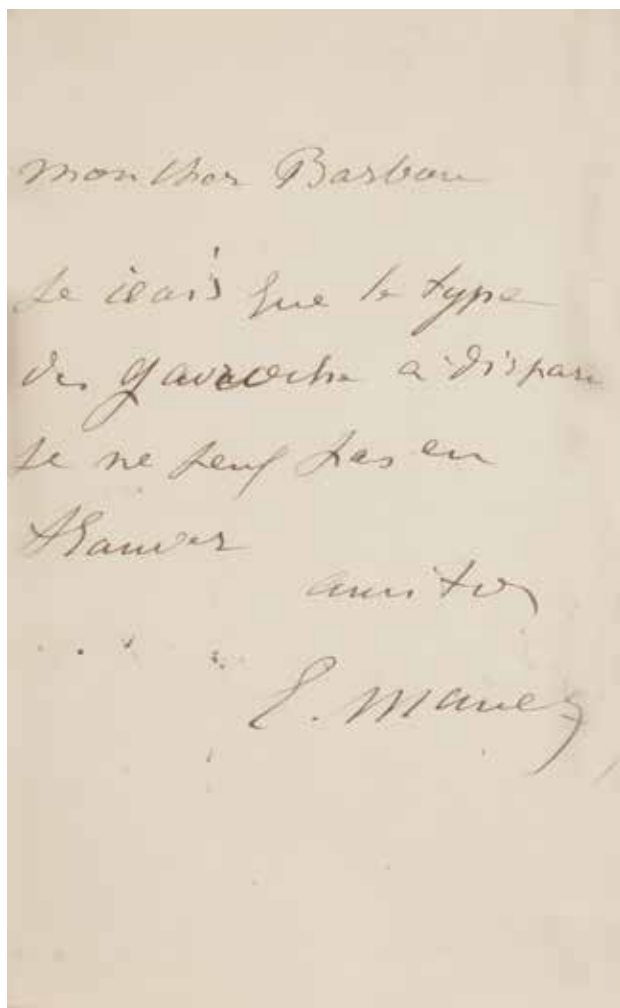 mon cher Barbou
Je crois que le type
du gavroche a disparu
Je ne peux pas en
trouver
amitiés
E. Manet